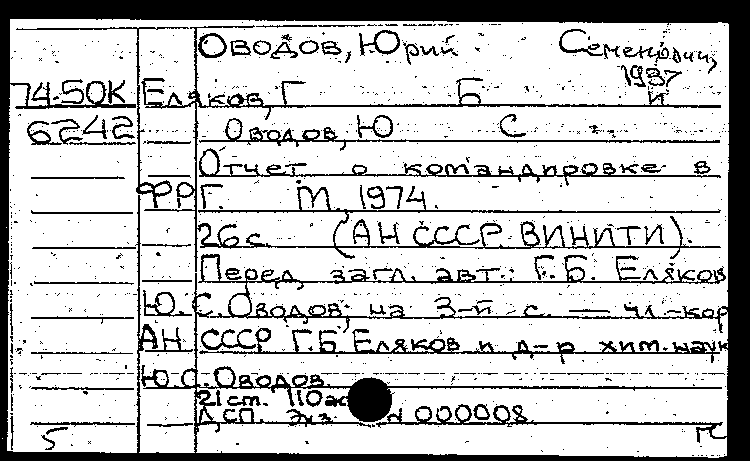 Оводов, Юрий Семенович, 1937
74-50К Еляков, Г Б и
6242 Оводов, Ю С
Отчет о командировке в
ФРГ. М., 1974.
26 с. (АН СССР. ВИНИТИ).
Перед загл. авт.: Г.Б. Еляков
Ю.С.Оводов; на 3-й с. — чл.-кор
АН СССР Г.Б Еляков и д-р хим.наук
Ю.С.Оводов.
21 ст. 110
ДСП. Экз. 000008.
5